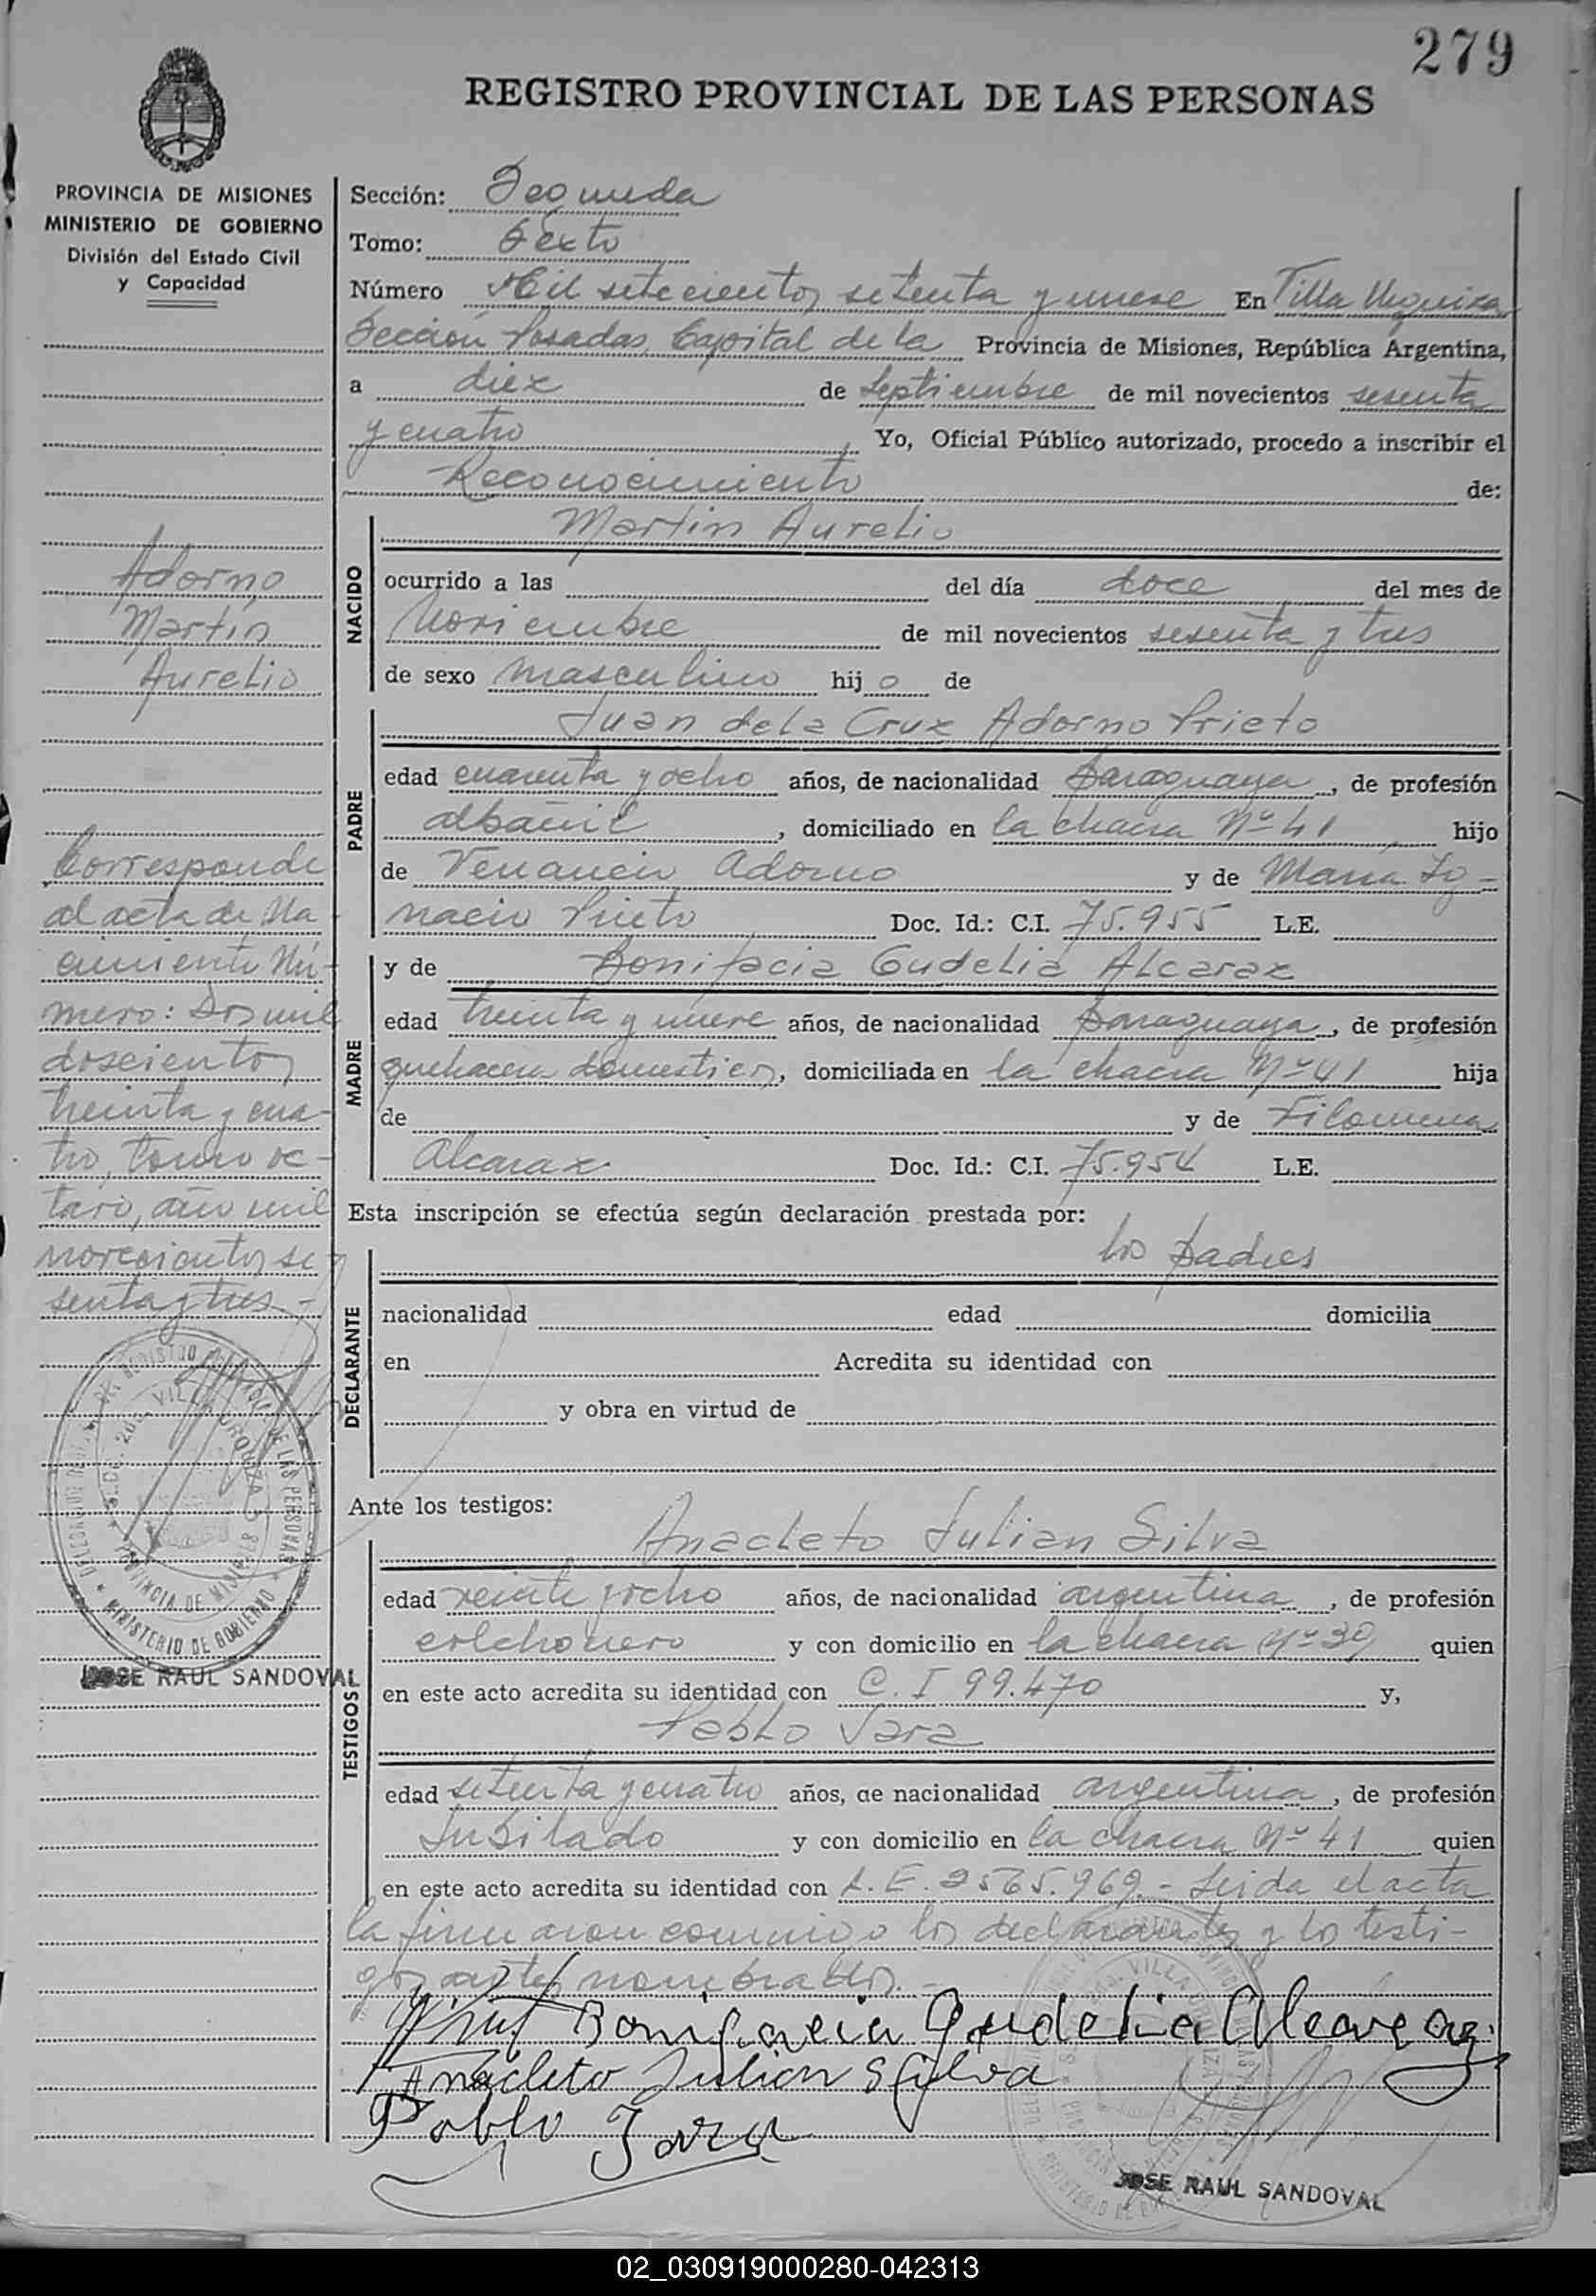 279
REGISTRO PROVINCIAL DE LAS PERSONAS
PROVINCIA DE MISIONES
MINISTERIO DE GOBIERNO
División del Estado Civil
y Capacidad
Adorno
Martin
Aurelio
Corresponde
al acta de Na
cimiento Nú-
mero: Dos mil
doscientos
treinta y cua-
tro, tomo oc-
tavo, año mil
novecientos se
senta y tres.-
MINISTERIO DE GOBIERNO
PROVINCIA DE MISIONES
JOSE RAUL SANDOVAL
Sección: Segunda
Tomo: Sexto
Número Mil setecientos setenta y nueve En Villa Urquiza
Sección Posadas Capital de la Provincia de Misiones, República Argentina,
a diez de Septiembre de mil novecientos sesenta
y cuatro Yo, Oficial Público autorizado, procedo a inscribir el
Reconocimiento de:
NACIDO
Martin Aurelio
ocurrido a las del día doce del mes de
Noviembre de mil novecientos sesenta y tres
de sexo masculino hijo de
PADRE
Juan de la Cruz Adorno Prieto
edad cuarenta y ocho años, de nacionalidad paraguaya, de profesión
albañil, domiciliado en la chacra Nº 41 hijo
de Venancio Adorno y de María Ig-
nacio Prieto Doc. Id.: C.I. 75.955 L.E.
MADRE
y de Bonifacia Gudelia Alcaraz
edad treinta y nueve años, de nacionalidad paraguaya, de profesión
quehaceres domesticos, domiciliada en la chacra Nº 41 hija
de y de Filomena
Alcaraz Doc. Id.: C.I. 75.954 L.E.
Esta inscripción se efectúa según declaración prestada por:
DECLARANTE
los padres
nacionalidad edad domicilia
en Acredita su identidad con
y obra en virtud de
Ante los testigos:
TESTIGOS
Anacleto Julian Silva
edad veinte y ocho años, de nacionalidad argentina, de profesión
colchonero y con domicilio en la chacra Nº 30 quien
en este acto acredita su identidad con C. I 99.470 y,
Pablo Jara
edad setenta y cuatro años, de nacionalidad argentina, de profesión
Jubilado y con domicilio en la chacra Nº 41 quien
en este acto acredita su identidad con L. E. 2565.969.- Leida el acta
la firmaron conmigo los declarantes y los testi-
gos antes nombrados.-
Bonifacia Gudelia Alcaraz
Anacleto Julian Silva
Pablo Jara
JOSE RAUL SANDOVAL
02_030919000280-042313